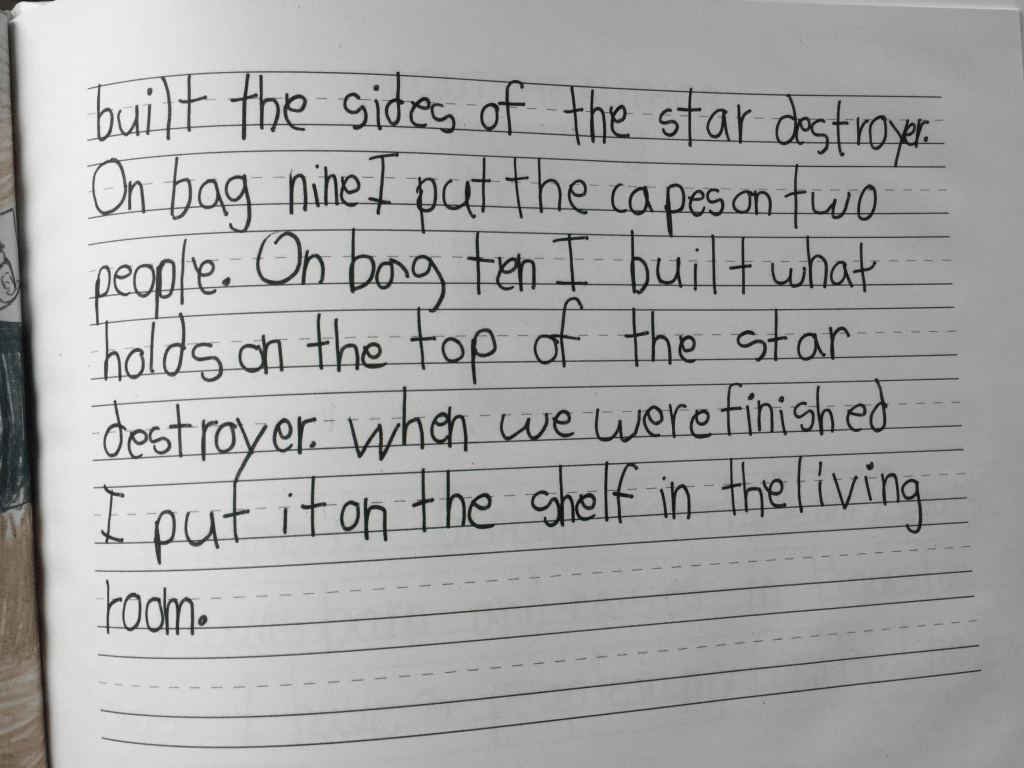 built the sides of the star destroyer.
On bag nine I put the capes on two
people. On bag ten I built what
holds on the top of the star
destroyer. When we were finished
I put it on the shelf in the living
room.